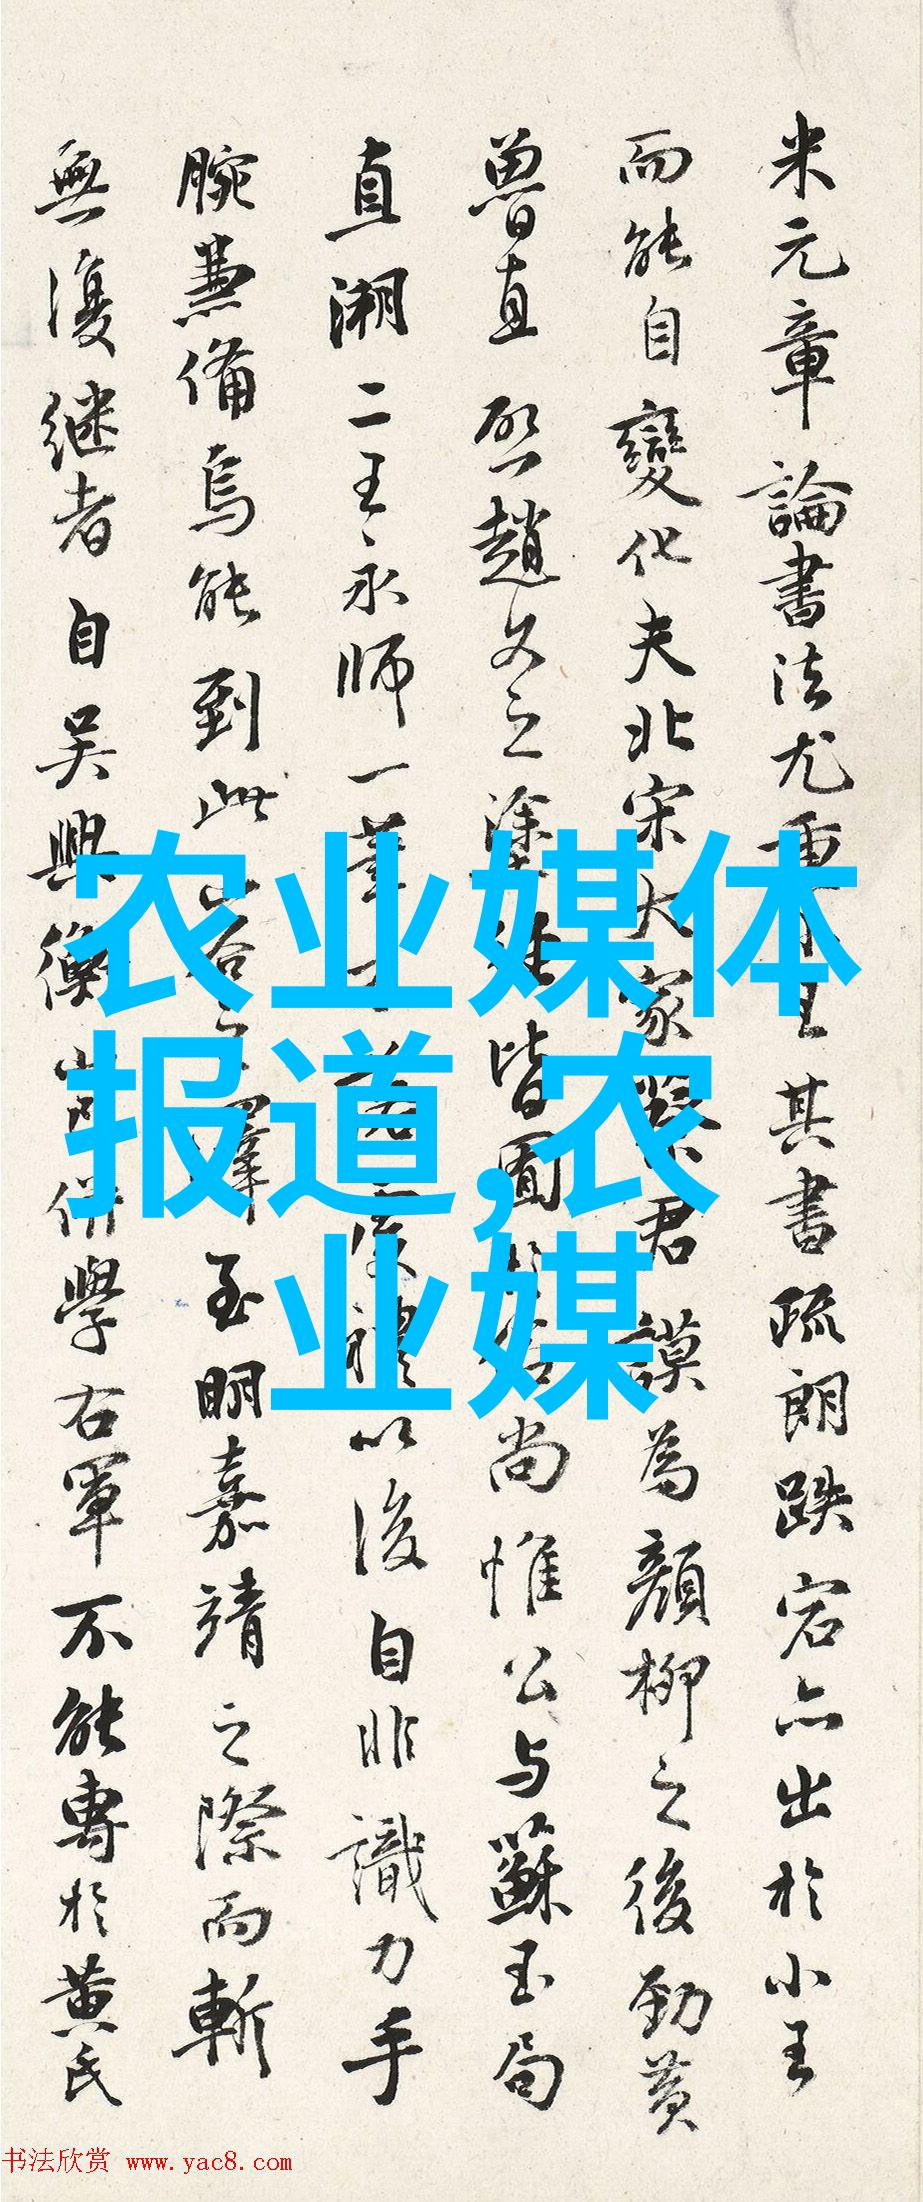 米元章論書法尤重小王其書疏朗跌宕亦出於小王
而能自變化夫北宋大家蔡君謨為顏柳之後勁黄
魯直 趙文之塗 皆 尚惟公与蘇玉局
直溯二王永師一 後 以後自非識力手
腕兼備烏能到此 至明嘉靖之際而斬
無復继者自吴興衡山 併學右軍不能專於黄氏
农业媒体
报道,农
业媒
书法欣赏 www.yac8.com